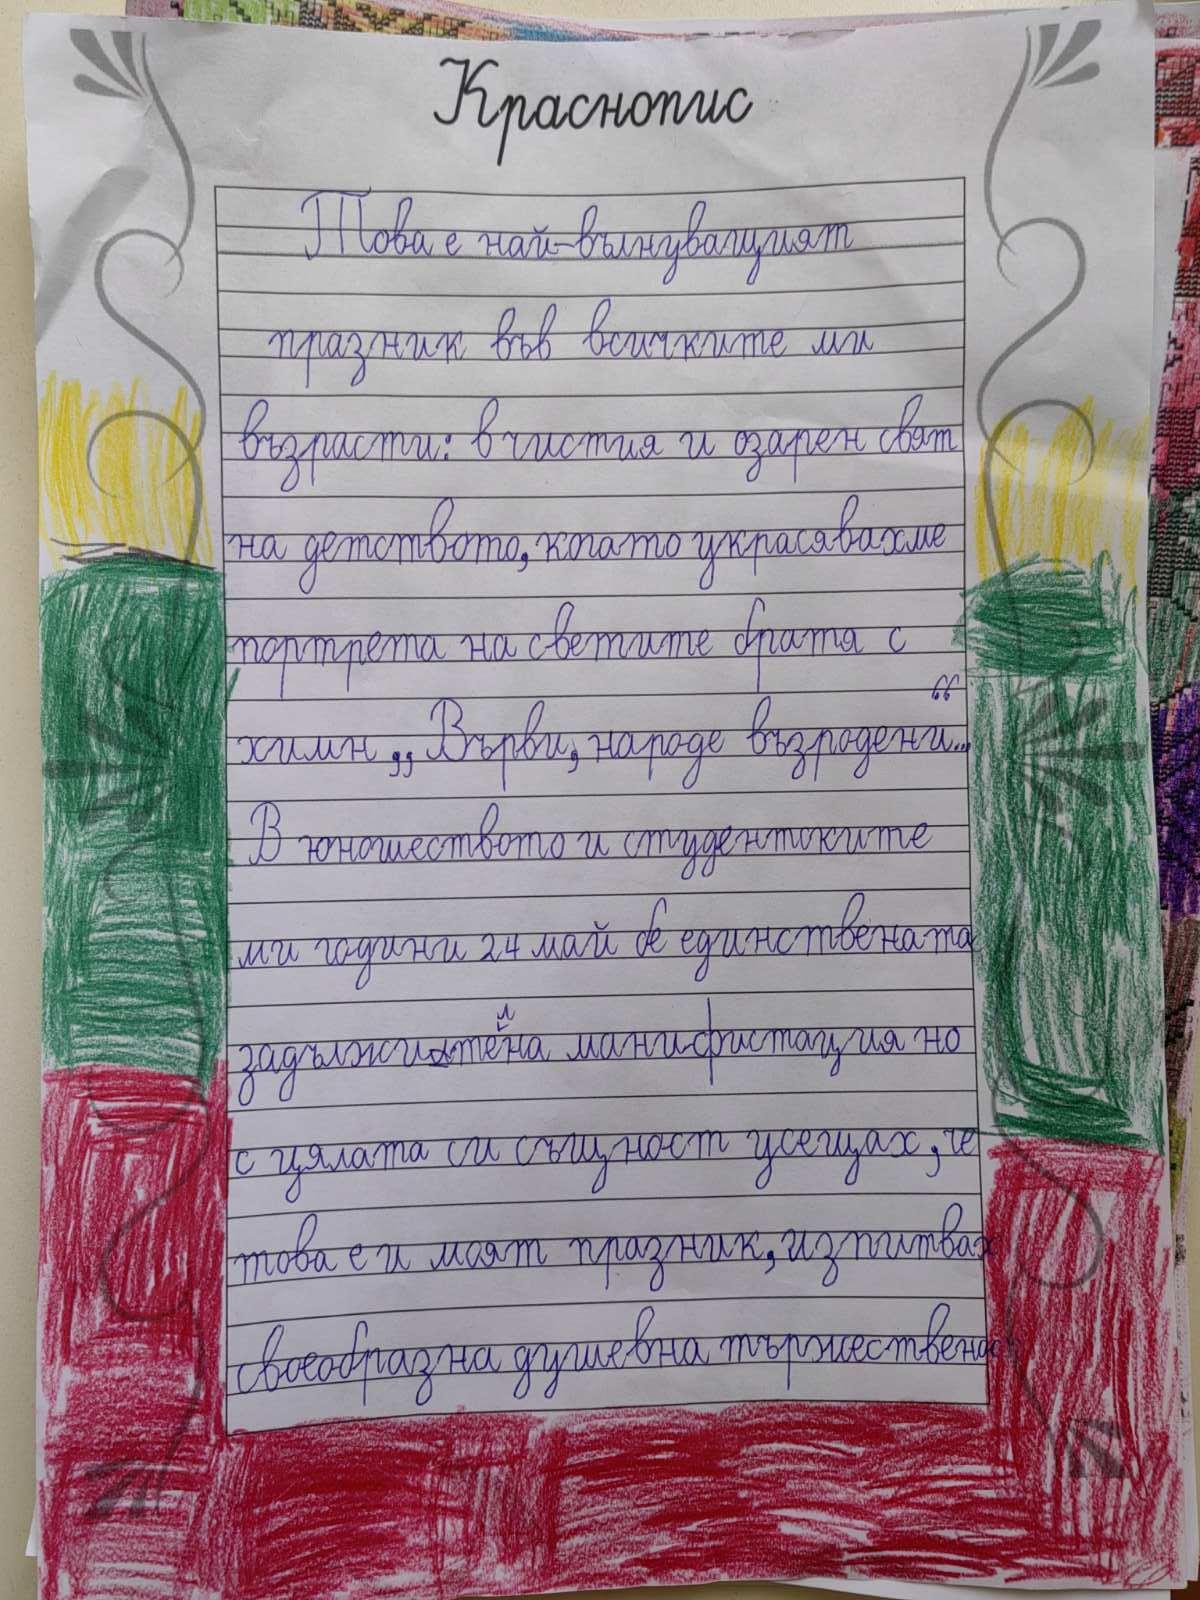 Краснопис
Това е най-вълнуващият
празник във всичките ми
възрасти: в чистия и озарен свят
на детството, когато украсявахме
портрета на светите братя с
химн „Върви, народе възродени...“
В юношеството и студентските
ми години 24 май бе единствената
задължителна манифистация но
с цялата си същност усещах, че
това е и моят празник, изпитвах
своеобразна душевна тържественос